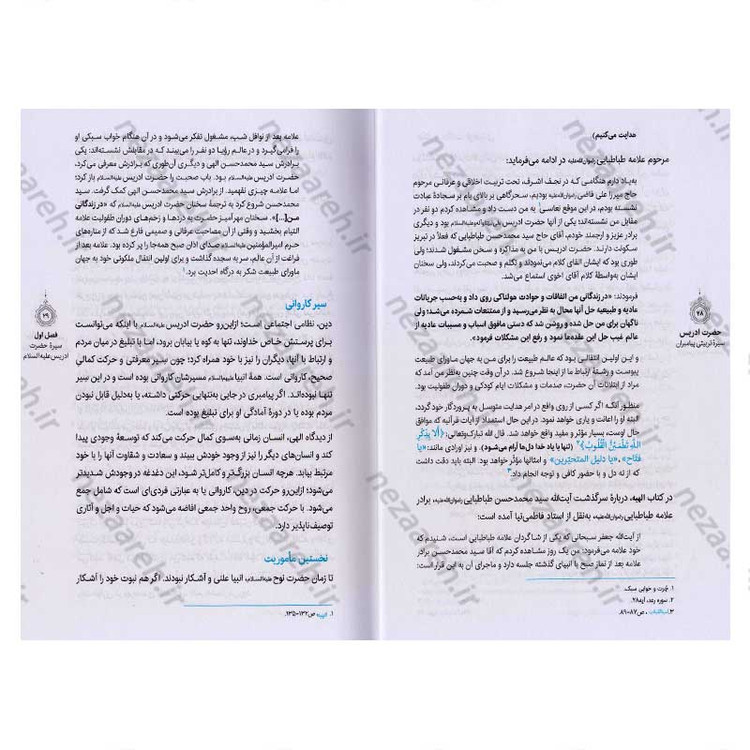 هدایت می‌کنیم)
مرحوم علامه طباطبایی رضوان‌الله‌علیه در ادامه می‌فرماید:
به‌یاد دارم هنگامی که در نجف اشرف، تحت تربیت اخلاقی و عرفانی مرحوم
حاج میرزا علی قاضی رضوان‌الله‌علیه بودیم، سحرگاهی بر بالای بام بر سجادهٔ عبادت
نشسته بودم، در این موقع نعاسی¹ به من دست داد و مشاهده کردم دو نفر در
مقابل من نشسته‌اند؛ یکی از آنها حضرت ادریس علیه‌السلام بود و دیگری
برادر عزیز و ارجمند خودم، آقای حاج سید محمدحسن طباطبایی که فعلاً در تبریز
سکونت دارند. حضرت ادریس با من به مذاکره و سخن مشغول شدند؛ ولی
طوری بود که ایشان القای کلام می‌نمودند و تکلم و صحبت می‌کردند، ولی سخنان
ایشان به‌واسطهٔ کلام آقای اخوی استماع می‌شد.
فرمودند: «در زندگانی من اتفاقات و حوادث هولناکی روی داد و به‌حسب جریانات
مادیه و طبیعیه حل آنها محال به نظر می‌رسید و از ممتنعات شمرده می‌شد؛ ولی
ناگهان برای من حل شده و روشن شد که دستی مافوق اسباب و مسببات عادیه از
عالم غیب حل این عقده‌ها نمود و رفع این مشکل فرمود.»
و این اولین انتقالی بود که عالم طبیعت را برای من به جهان ماورای طبیعت
پیوست و رشتهٔ ارتباط ما از اینجا شروع شد. در آن وقت چنین به‌نظر من آمد که
مراد از ابتلائات آن حضرت، صدمات و مشکلات ایام کودکی و دوران طفولیت بود.
منظور آنکه اگر کسی از روی واقع در امر هدایت متوسل به پروردگار خود گردد،
البته او را اعانت و یاری خواهد نمود. در این حال استمداد از آیات قرآنیه که موافق
حال اوست، بسیار مؤثر و مفید واقع خواهد شد. قال الله تبارک‌وتعالی: ﴿أَلَا بِذِكْرِ
اللَّهِ تَطْمَئِنُّ الْقُلُوبُ﴾² (تنها با یاد خدا دل‌ها آرام می‌شود). و نیز اورادی مانند: «یا
فتاح»، «یا دلیل المتحیرین» و امثالها مؤثر خواهد بود. البته باید دقت داشت
که از ته دل و با حضور کافی و توجه انجام داد.³
در کتاب الهیه، دربارهٔ سرگذشت آیت‌الله سید محمدحسن طباطبایی رضوان‌الله‌علیه، برادر
علامه طباطبایی رضوان‌الله‌علیه، به‌نقل از استاد فاطمی‌نیا آمده است:
از آیت‌الله جعفر سبحانی که یکی از شاگردان علامه طباطبایی است، شنیدم که
خود علامه می‌فرمود: من یک روز مشاهده کردم که آقا سید محمدحسن برادر
علامه بعد از نماز صبح با انبیای گذشته جلسه دارد و ماجرای آن به این قرار است:
۱. چُرت و خوابی سبک.
۲. سوره رعد، آیه۲۸.
۳. لب‌اللباب، ص۸۷-۸۹.
۲۸
حضرت ادریس
سیرهٔ تربیتی پیامبران
علامه بعد از نوافل شب، مشغول تفکر می‌شود و در آن هنگام خواب سبکی او
را فرامی‌گیرد و در عالم رؤیا دو نفر را می‌بیند که در مقابلش نشسته‌اند: یکی
برادرش سید محمدحسن الهی و دیگری آن‌طوری که برادرش معرفی می‌کرد،
حضرت ادریس علیه‌السلام بود. باب صحبت را حضرت ادریس علیه‌السلام باز کرد؛
اما علامه چیزی نفهمید. از برادرش سید محمدحسن الهی کمک گرفت. سید
محمدحسن شروع کرد به ترجمهٔ سخنان حضرت ادریس علیه‌السلام که «در زندگانی
من[...]». سخنان مهرآمیز حضرت به دردها و زخم‌های دوران طفولیت علامه
التیام بخشید و وقتی از آن مصاحبت عرفانی و صمیمی فارغ شد که از مناره‌های
حرم امیرالمؤمنین علیه‌السلام صدای اذان صبح همه‌جا را پر کرده بود. علامه بعد از
فراغت از آن عالم، سر به سجده گذاشت و برای اولین انتقال ملکوتی خود به جهان
ماورای طبیعت شکر به درگاه احدیت برد.¹
سیر کاروانی
دین، نظامی اجتماعی است؛ ازاین‌رو حضرت ادریس علیه‌السلام با اینکه می‌توانست
برای پرستش خاص خداوند، تنها به کوه یا بیابان برود، اما با تبلیغ در میان مردم
و ارتباط با آنها، دیگران را نیز با خود همراه کرد؛ چون سیر معرفتی و حرکت کمالی
صحیح، کاروانی است. همهٔ انبیا علیهم‌السلام مسیرشان کاروانی بوده است و در این سیر
تنها نبوده‌اند. اگر پیامبری در جایی به‌تنهایی حرکتی داشته، یا به‌دلیل قابل نبودن
مردم بوده یا در دورهٔ آمادگی او برای تبلیغ بوده است.
از دیدگاه الهی، انسان زمانی به‌سوی کمال حرکت می‌کند که توسعهٔ وجودی پیدا
کند و انسان‌های دیگر را نیز از وجود خودش ببیند و سعادت و شقاوت آنها را با خود
مرتبط بیابد. هرچه انسان بزرگ‌تر و کامل‌تر شود، این دغدغه در وجودش شدیدتر
می‌شود؛ ازاین‌رو حرکت در دین، کاروانی یا به عبارتی فردی‌ای است که شامل جمع
می‌شود. با حرکت جمعی، روح واحد جمعی افاضه می‌شود که حیات و اجل و آثاری
توصیف‌ناپذیر دارد.
نخستین مأموریت
تا زمان حضرت نوح علیه‌السلام انبیا علنی و آشکار نبودند. اگر هم نبوت خود را آشکار
۱. الهیه، ص۱۳۲-۱۳۵.
۲۹
فصل اول
سیرهٔ حضرت
ادریس علیه‌السلام
nezaareh.ir